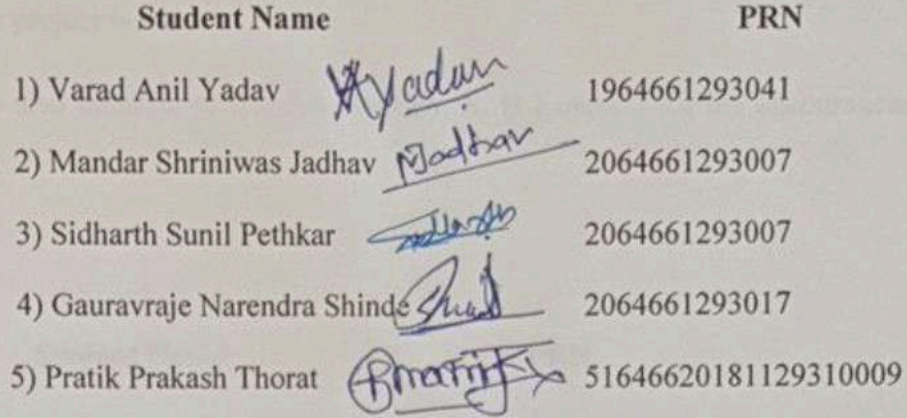 Student Name PRN
1) Varad Anil Yadav AYadav 1964661293041
2) Mandar Shriniwas Jadhav MJadhav 2064661293007
3) Sidharth Sunil Pethkar 2064661293007
4) Gauravraje Narendra Shinde 2064661293017
5) Pratik Prakash Thorat 51646620181129310009